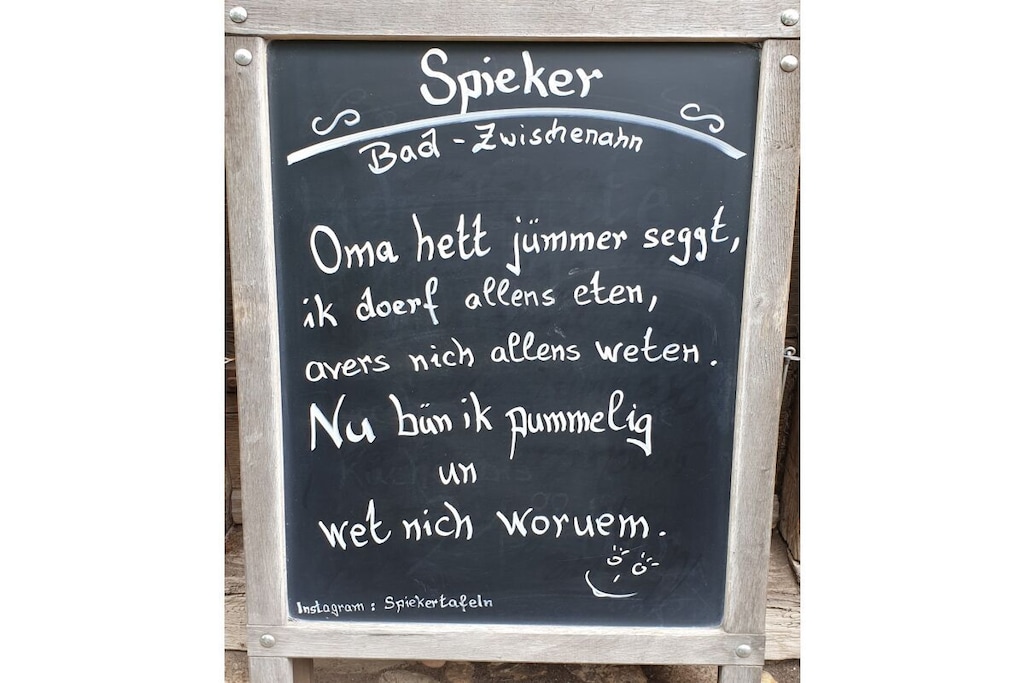 Spieker
Bad-Zwischenahn
Oma hett jümmer seggt,
ik doerf allens eten,
avers nich allens weten.
Nu bün ik pummelig
un
wet nich woruem.
Instagram: Spiekertafeln